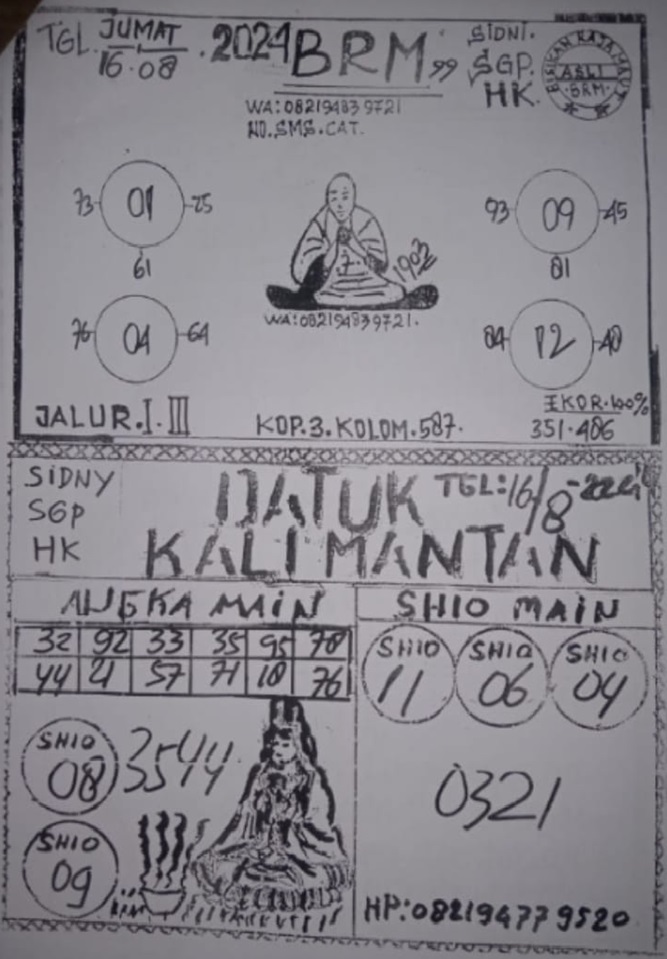 TGL. JUMAT 16.08 .2024 BRM 99
SIDNI.
SGP.
HK.
BISIKAN RAJA
ASLI
.BRM.
WA:082194839721
NO.SMS.CAT.
73 01 25
61
93 09 45
81
1902
7
WA:082194839721.
76 04 64
84 12 48
EKOR.100%
JALUR.I.III
KOP.3.KOLOM.587.
351.486
SIDNY
SGP
HK
DATUK
KALIMANTAN
TGL:16/8
ANGKA MAIN
32 92 33 35 95 78
44 21 57 71 18 76
SHIO MAIN
SHIO 11
SHIO 06
SHIO 04
SHIO 08
3544
SHIO 09
0321
HP:082194779520